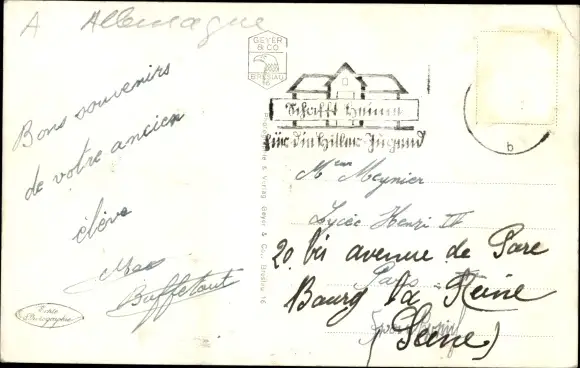 A Allemagne
GEYER
& CO.
BRESLAU
16
Schafft Heime
für die Hitler-Jugend
b
Bons souvenirs
de votre ancien
élève
Buffetaut
Echte
Photographie
& Verlag Geyer & Co., Breslau 16
Meynier
Lycée Henri IV
20 bis avenue de Gare
Paris
Bourg la Reine
(Seine)